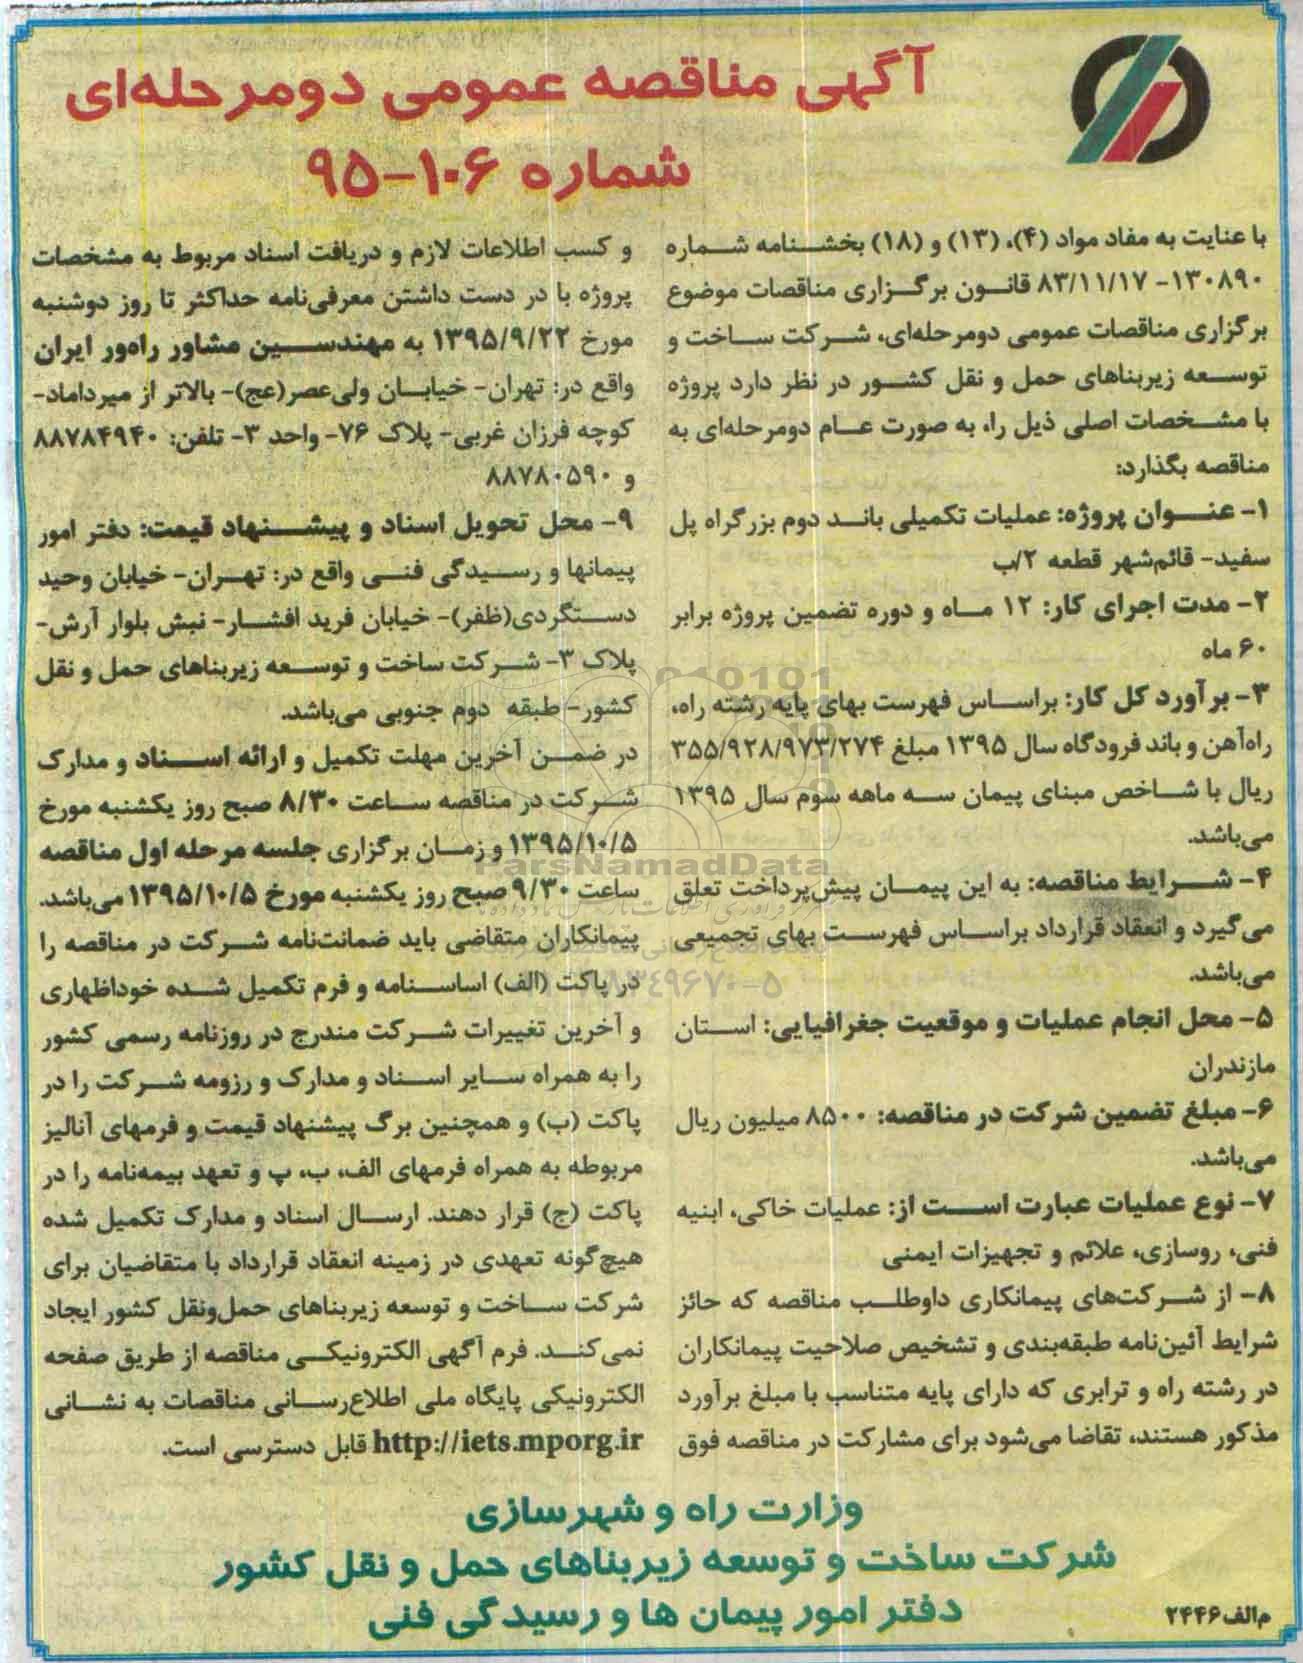 آگهی مناقصه عمومی دومرحله‌ای
شماره ۱۰۶-۹۵
با عنایت به مفاد مواد (۴)، (۱۳) و (۱۸) بخشنامه شماره
۱۳۰۸۹۰- ۸۳/۱۱/۱۷ قانون برگزاری مناقصات موضوع
برگزاری مناقصات عمومی دومرحله‌ای، شرکت ساخت و
توسعه زیربناهای حمل و نقل کشور در نظر دارد پروژه
با مشخصات اصلی ذیل را، به صورت عام دومرحله‌ای به
مناقصه بگذارد:
۱- عنوان پروژه: عملیات تکمیلی باند دوم بزرگراه پل
سفید- قائم‌شهر قطعه ۲/ب
۲- مدت اجرای کار: ۱۲ ماه و دوره تضمین پروژه برابر
۶۰ ماه
۳- برآورد کل کار: براساس فهرست بهای پایه رشته راه،
راه‌آهن و باند فرودگاه سال ۱۳۹۵ مبلغ ۳۵۵/۹۲۸/۹۷۳/۲۷۴
ریال با شاخص مبنای پیمان سه ماهه سوم سال ۱۳۹۵
می‌باشد.
۴- شرایط مناقصه: به این پیمان پیش‌پرداخت تعلق
می‌گیرد و انعقاد قرارداد براساس فهرست بهای تجمیعی
می‌باشد.
۵- محل انجام عملیات و موقعیت جغرافیایی: استان
مازندران
۶- مبلغ تضمین شرکت در مناقصه: ۸۵۰۰ میلیون ریال
می‌باشد.
۷- نوع عملیات عبارت است از: عملیات خاکی، ابنیه
فنی، روسازی، علائم و تجهیزات ایمنی
۸- از شرکت‌های پیمانکاری داوطلب مناقصه که حائز
شرایط آئین‌نامه طبقه‌بندی و تشخیص صلاحیت پیمانکاران
در رشته راه و ترابری که دارای پایه متناسب با مبلغ برآورد
مذکور هستند، تقاضا می‌شود برای مشارکت در مناقصه فوق
و کسب اطلاعات لازم و دریافت اسناد مربوط به مشخصات
پروژه با در دست داشتن معرفی‌نامه حداکثر تا روز دوشنبه
مورخ ۱۳۹۵/۹/۲۲ به مهندسین مشاور راه‌ور ایران
واقع در: تهران- خیابان ولی‌عصر(عج)- بالاتر از میرداماد-
کوچه فرزان غربی- پلاک ۷۶- واحد ۳- تلفن: ۸۸۷۸۴۹۴۰
و ۸۸۷۸۰۵۹۰
۹- محل تحویل اسناد و پیشنهاد قیمت: دفتر امور
پیمانها و رسیدگی فنی واقع در: تهران- خیابان وحید
دستگردی(ظفر)- خیابان فرید افشار- نبش بلوار آرش-
پلاک ۳- شرکت ساخت و توسعه زیربناهای حمل و نقل
کشور- طبقه دوم جنوبی می‌باشد.
در ضمن آخرین مهلت تکمیل و ارائه اسناد و مدارک
شرکت در مناقصه ساعت ۸/۳۰ صبح روز یکشنبه مورخ
۱۳۹۵/۱۰/۵ و زمان برگزاری جلسه مرحله اول مناقصه
ساعت ۹/۳۰ صبح روز یکشنبه مورخ ۱۳۹۵/۱۰/۵ می‌باشد.
پیمانکاران متقاضی باید ضمانت‌نامه شرکت در مناقصه را
در پاکت (الف) اساسنامه و فرم تکمیل شده خوداظهاری
و آخرین تغییرات شرکت مندرج در روزنامه رسمی کشور
را به همراه سایر اسناد و مدارک و رزومه شرکت را در
پاکت (ب) و همچنین برگ پیشنهاد قیمت و فرمهای آنالیز
مربوطه به همراه فرمهای الف، ب، پ و تعهد بیمه‌نامه را در
پاکت (ج) قرار دهند. ارسال اسناد و مدارک تکمیل شده
هیچ‌گونه تعهدی در زمینه انعقاد قرارداد با متقاضیان برای
شرکت ساخت و توسعه زیربناهای حمل‌ونقل کشور ایجاد
نمی‌کند. فرم آگهی الکترونیکی مناقصه از طریق صفحه
الکترونیکی پایگاه ملی اطلاع‌رسانی مناقصات به نشانی
http://iets.mporg.ir قابل دسترسی است.
وزارت راه و شهرسازی
شرکت ساخت و توسعه زیربناهای حمل و نقل کشور
دفتر امور پیمان ها و رسیدگی فنی
م‌الف۲۴۴۶
ParsNamadData